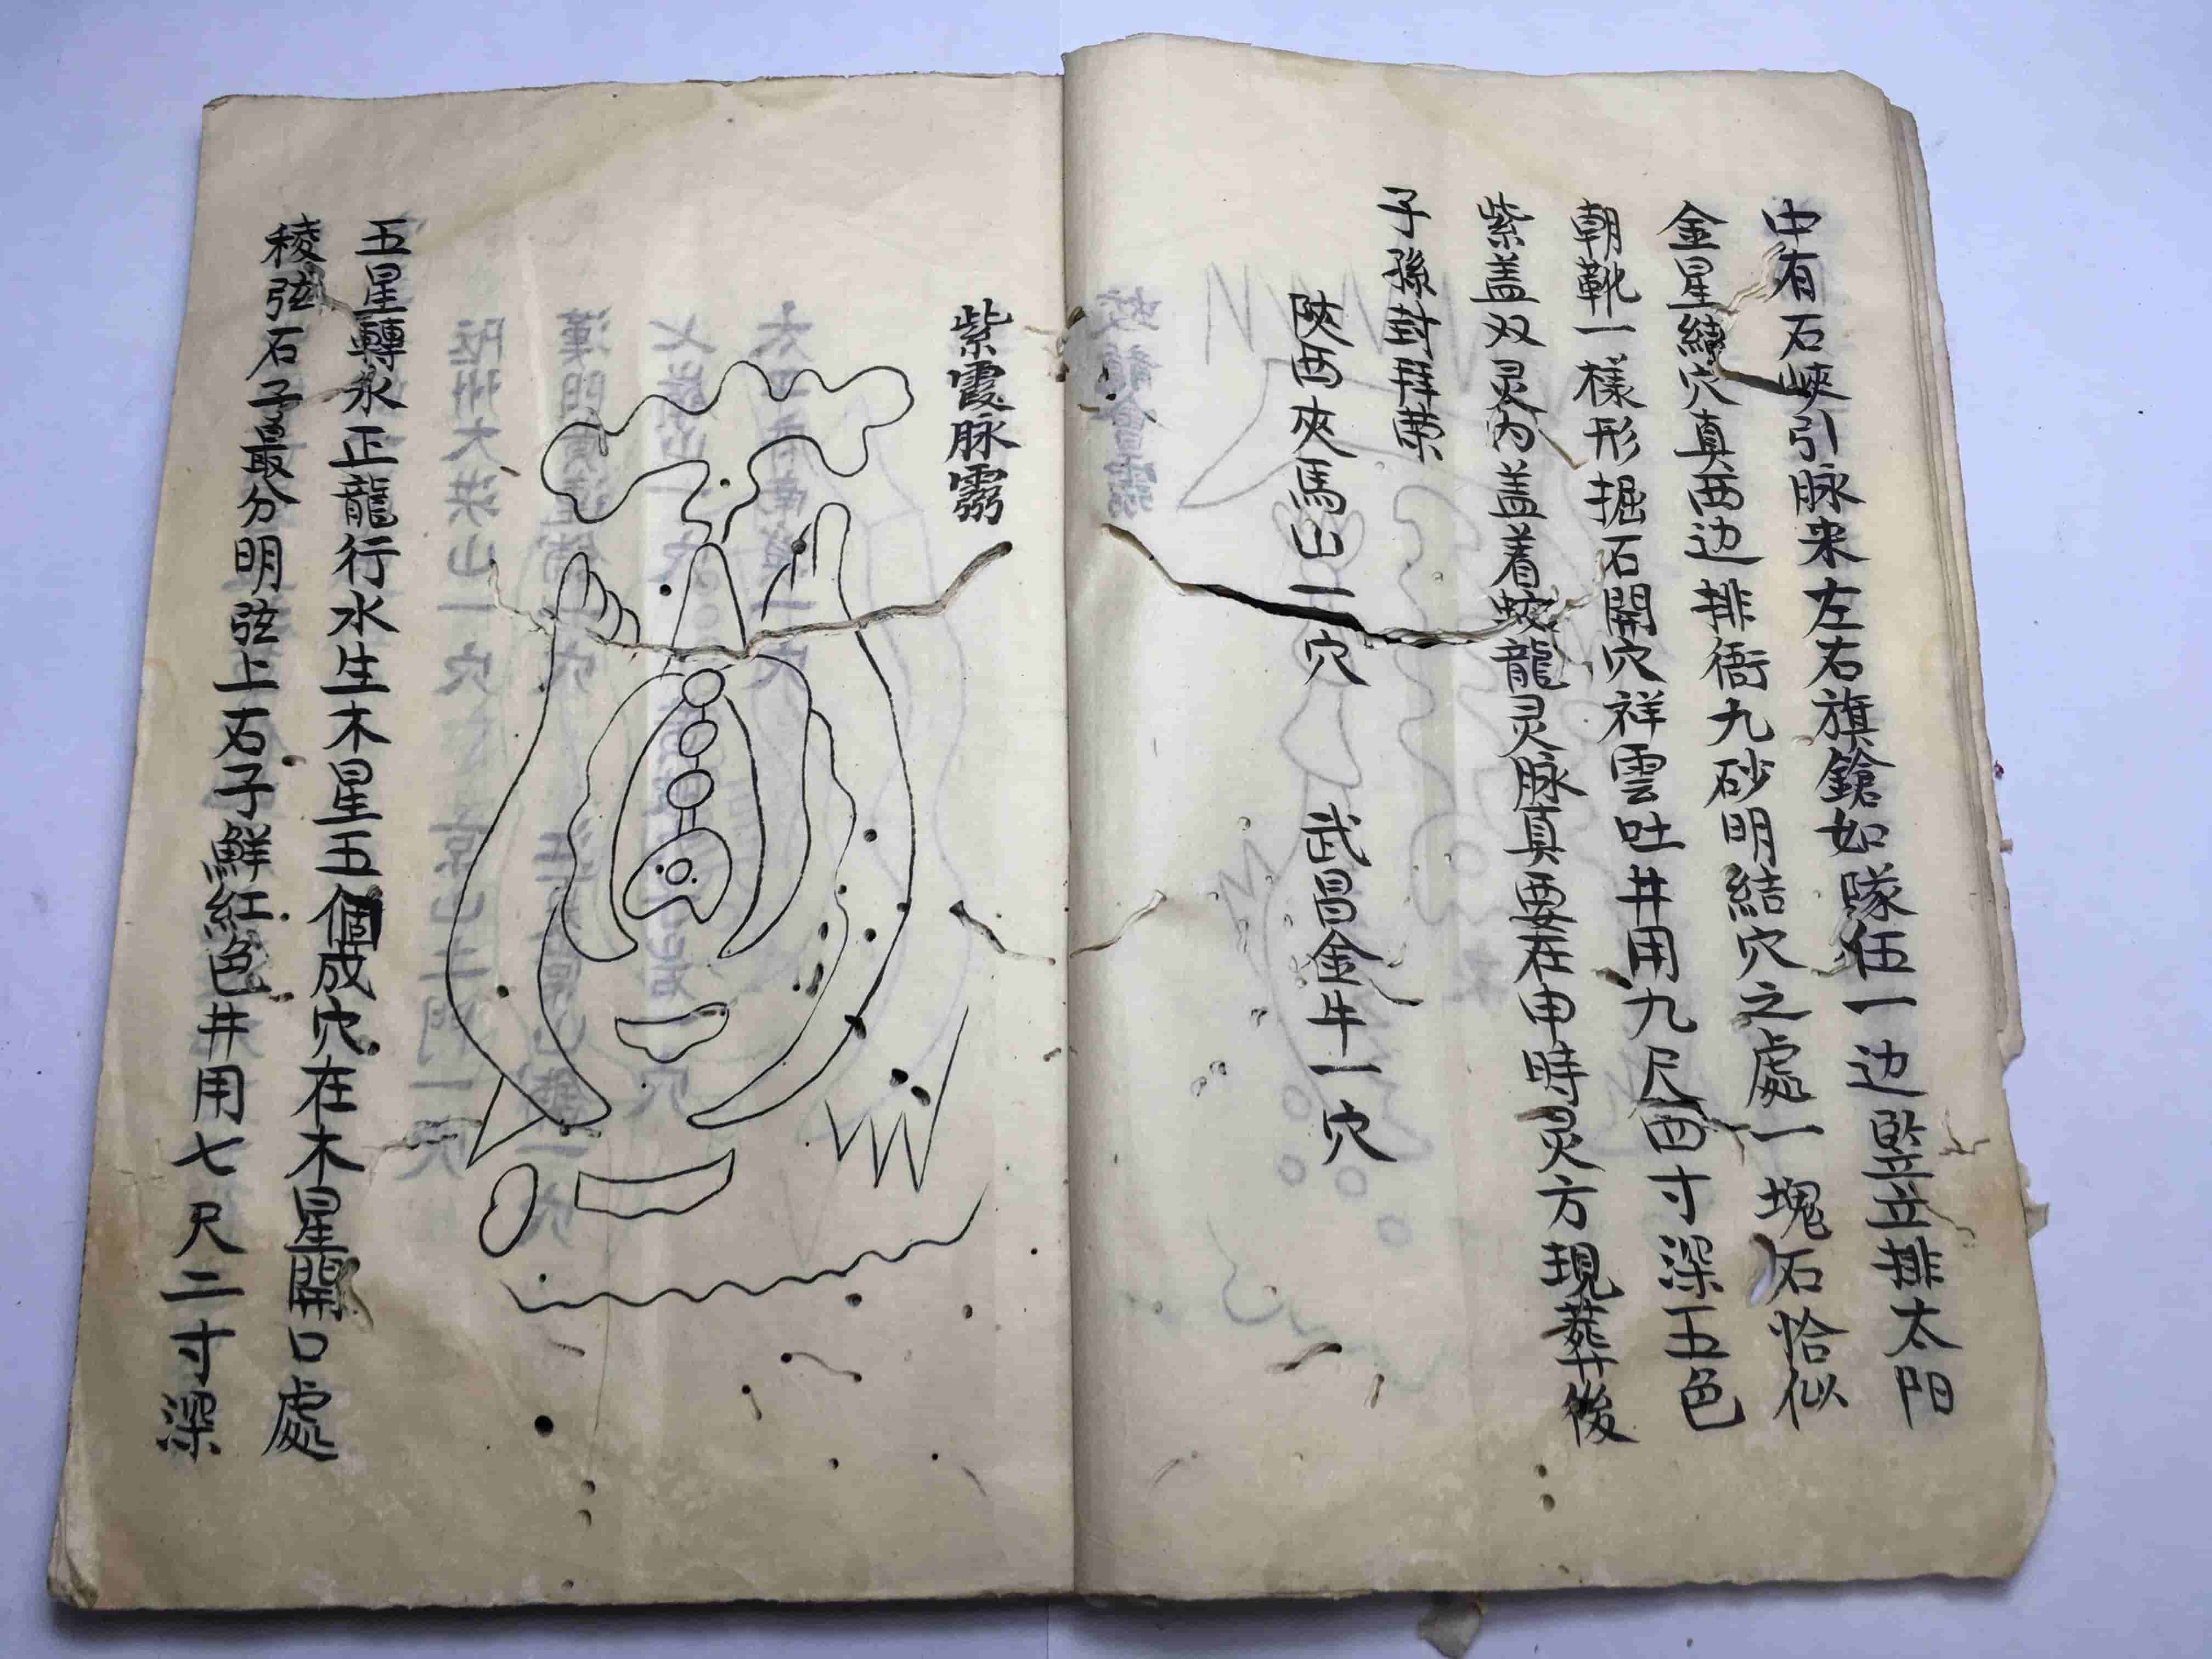 中有石峽引脉来左右旗鎗如隊伍一边竪立排太門
金星繞穴真两边排衙九砂明結穴之處一塊石恰似
朝靴一樣形掘石開穴祥雲吐井用九尺四寸深五色
紫盖双灵为盖着蛟龍灵脉真要在申時灵方現葬後
子孫封拜荣
陕西夾馬山二穴 武昌金牛一穴
紫霞脉
五星轉水正龍行水生木星五個成穴在木星開口處
稜弦石子最分明弦上石子鮮紅色井用七尺二寸深